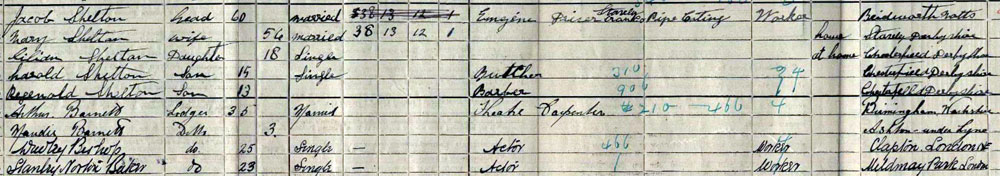 Jacob Shelton Head 60 married 38 13 12 1 Engine Driver Stavely Pipe Casting Worker Notts
Mary Shelton Wife 56 married 38 13 12 1 home Stavely Derbyshire
Lilian Shelton Daughter 18 Single at home Chesterfield Derbyshire
Harold Shelton Son 15 Single Butcher 310 Chesterfield Derbyshire
Reginald Shelton Son 13 Barber 906 Chesterfield Derbyshire
Arthur Barnett Lodger 35 Married Theatre Carpenter Birmingham Warkshire
Maudie Barnett Ditto 3 Ashton-under-Lyne
Bishop do. 25 Single — Actor 499 Worker Clapton London NE
Stanley Norton Baker do 23 Single — Actor Worker Mildmay Park London